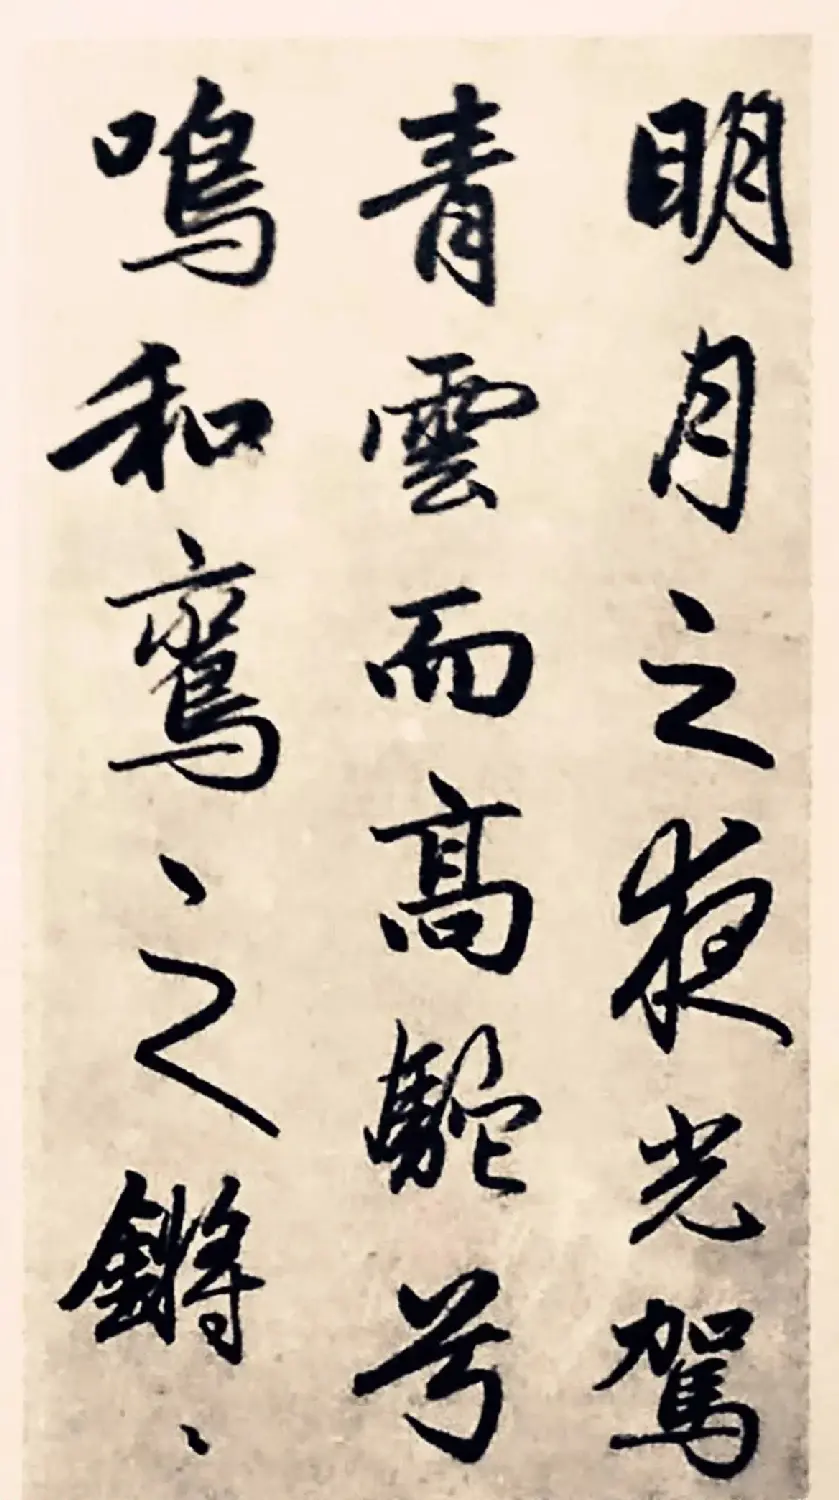 明月之夜光駕
青雲而高駝兮
鳴和鸞之鏘〻